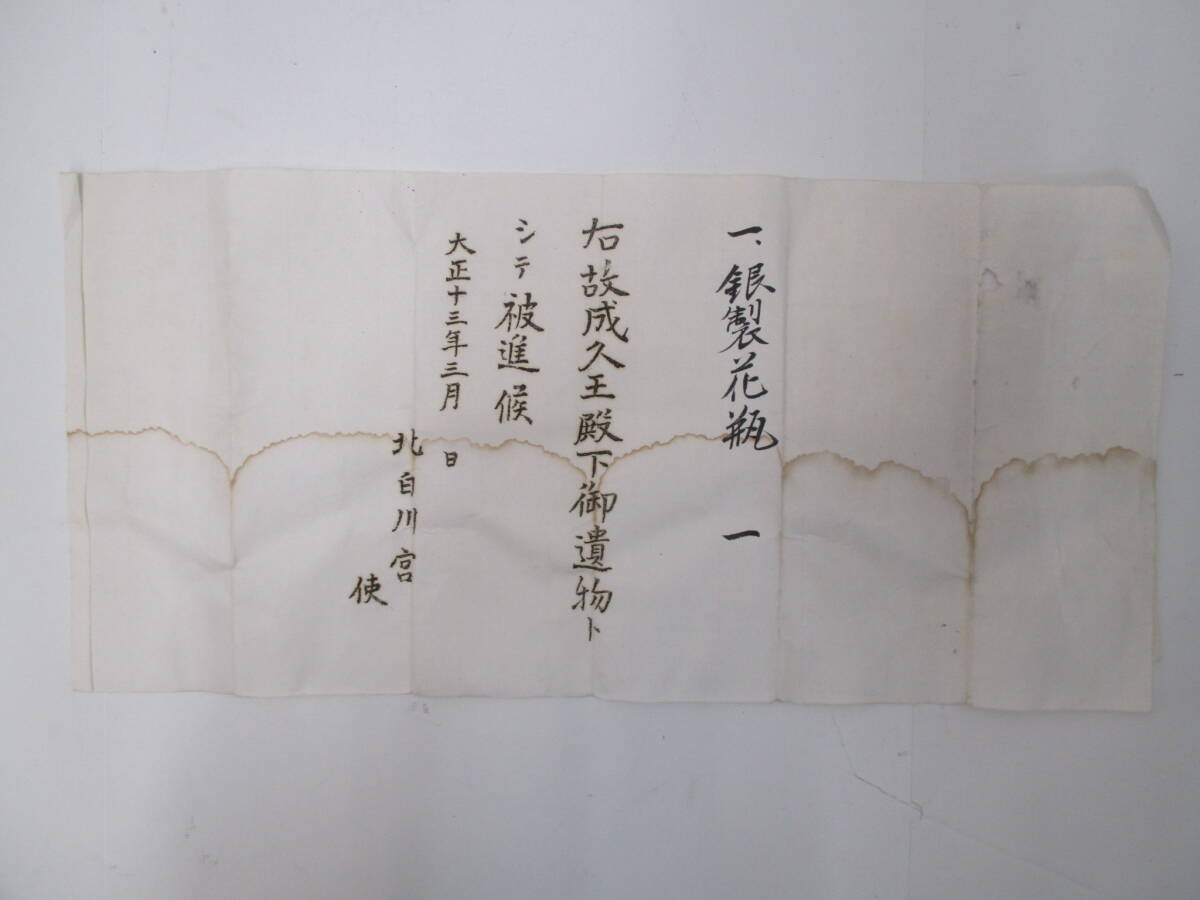 一、銀製花瓶　一
右故成久王殿下御遺物ト
シテ被進候
大正十三年三月　日
北白川宮
使